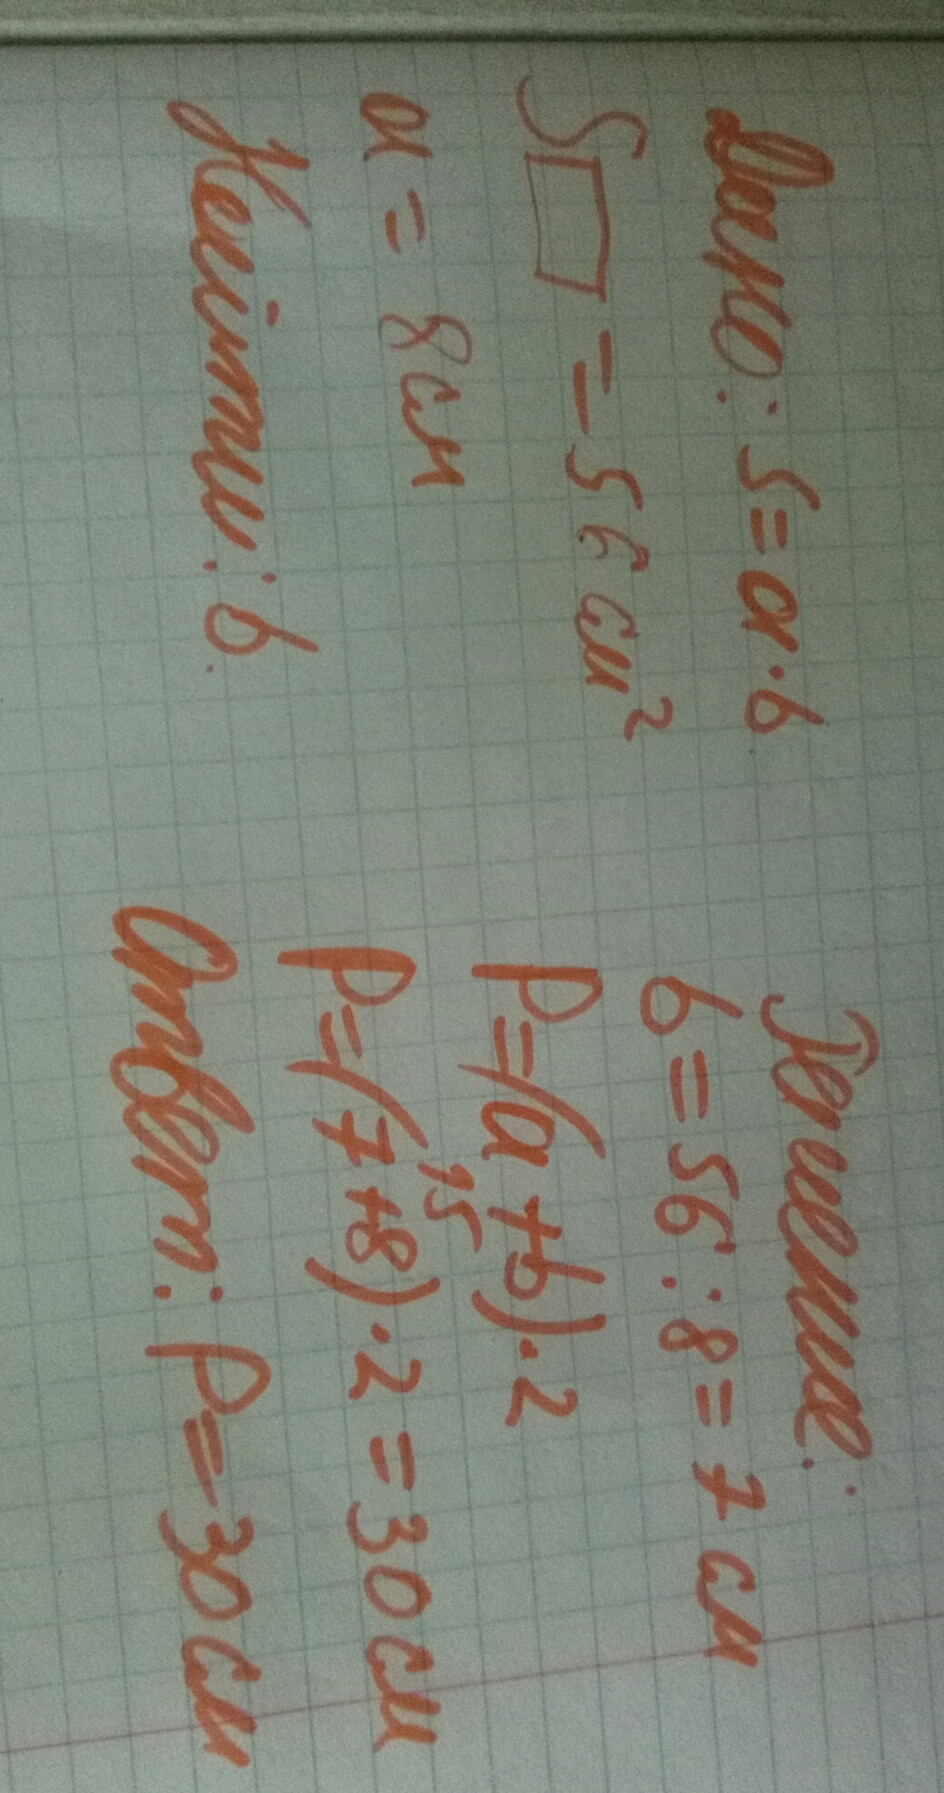 Дано: S = a · b
S▭ = 56 см²
a = 8 см
Найти: b.
Решение:
b = 56 : 8 = 7 см
P = (a + b) · 2
15
P = (7 + 8) · 2 = 30 см
Ответ: P = 30 см